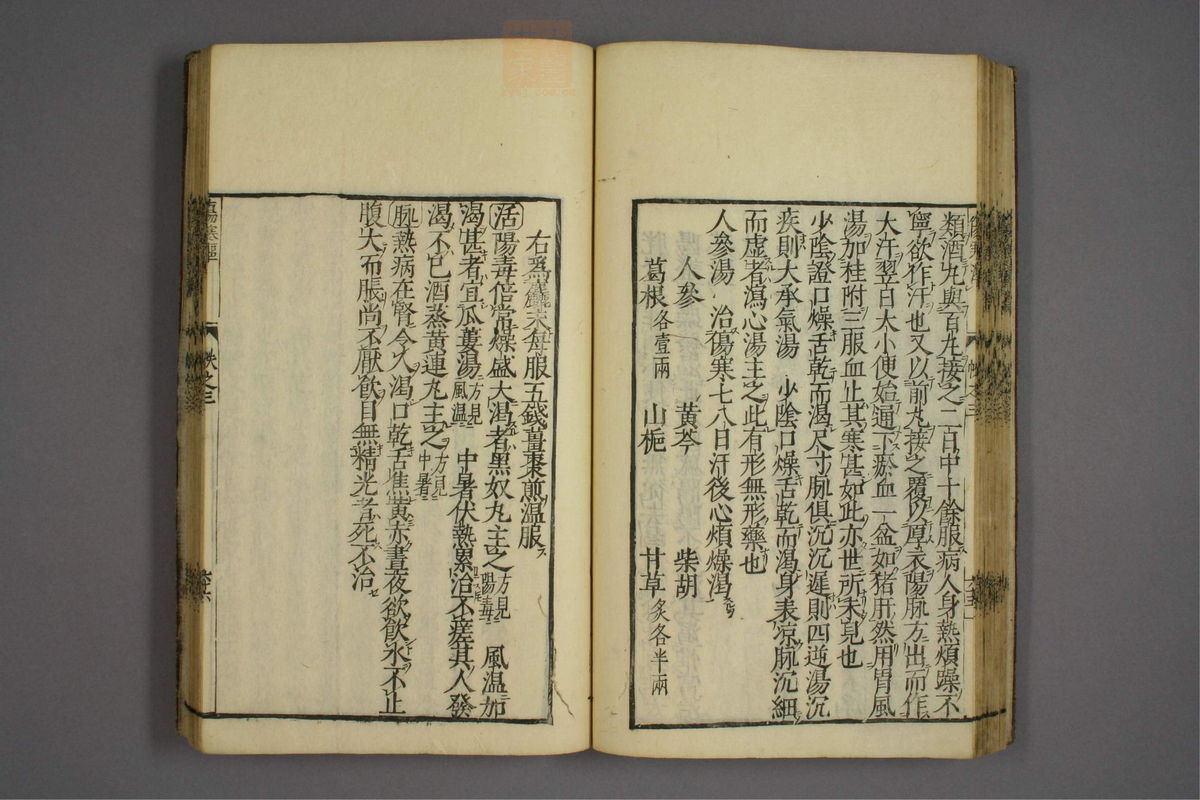 類酒丸與百丸接之二日中十餘服病人身熱煩躁不
寧欲作汗也又以前丸接之覆以厚衣陽脉方出而作
大汗翌日大小便始通下瘀血一盆如猪肝然用胃風
湯加桂附三服血止其寒甚如此亦世所未見也
少陰證口燥舌乾而渴尺寸脉俱沉沉遲則四逆湯沉
疾則大承氣湯 少陰口燥舌乾而渴身表凉脉沉細
而虚者瀉心湯主之此有形無形藥也
人參湯 治傷寒七八日汗後心煩燥渴
人參 黄芩 柴胡
葛根各壹兩 山梔 甘草炙各半兩
右爲麄末每服五錢薑棗煎溫服
活陽毒倍常燥盛大渴者黑奴丸主之方見陽毒 風溫加
渴甚者宜瓜蔞湯方見風溫 中暑伏熱累治不瘥其人發
渴不已酒蒸黄連丸主之方見中暑
脉熱病在腎令人渴口乾舌焦黄赤晝夜欲飲水不止
腹大而脹尚不厭飲目無精光者死不治
帙之三